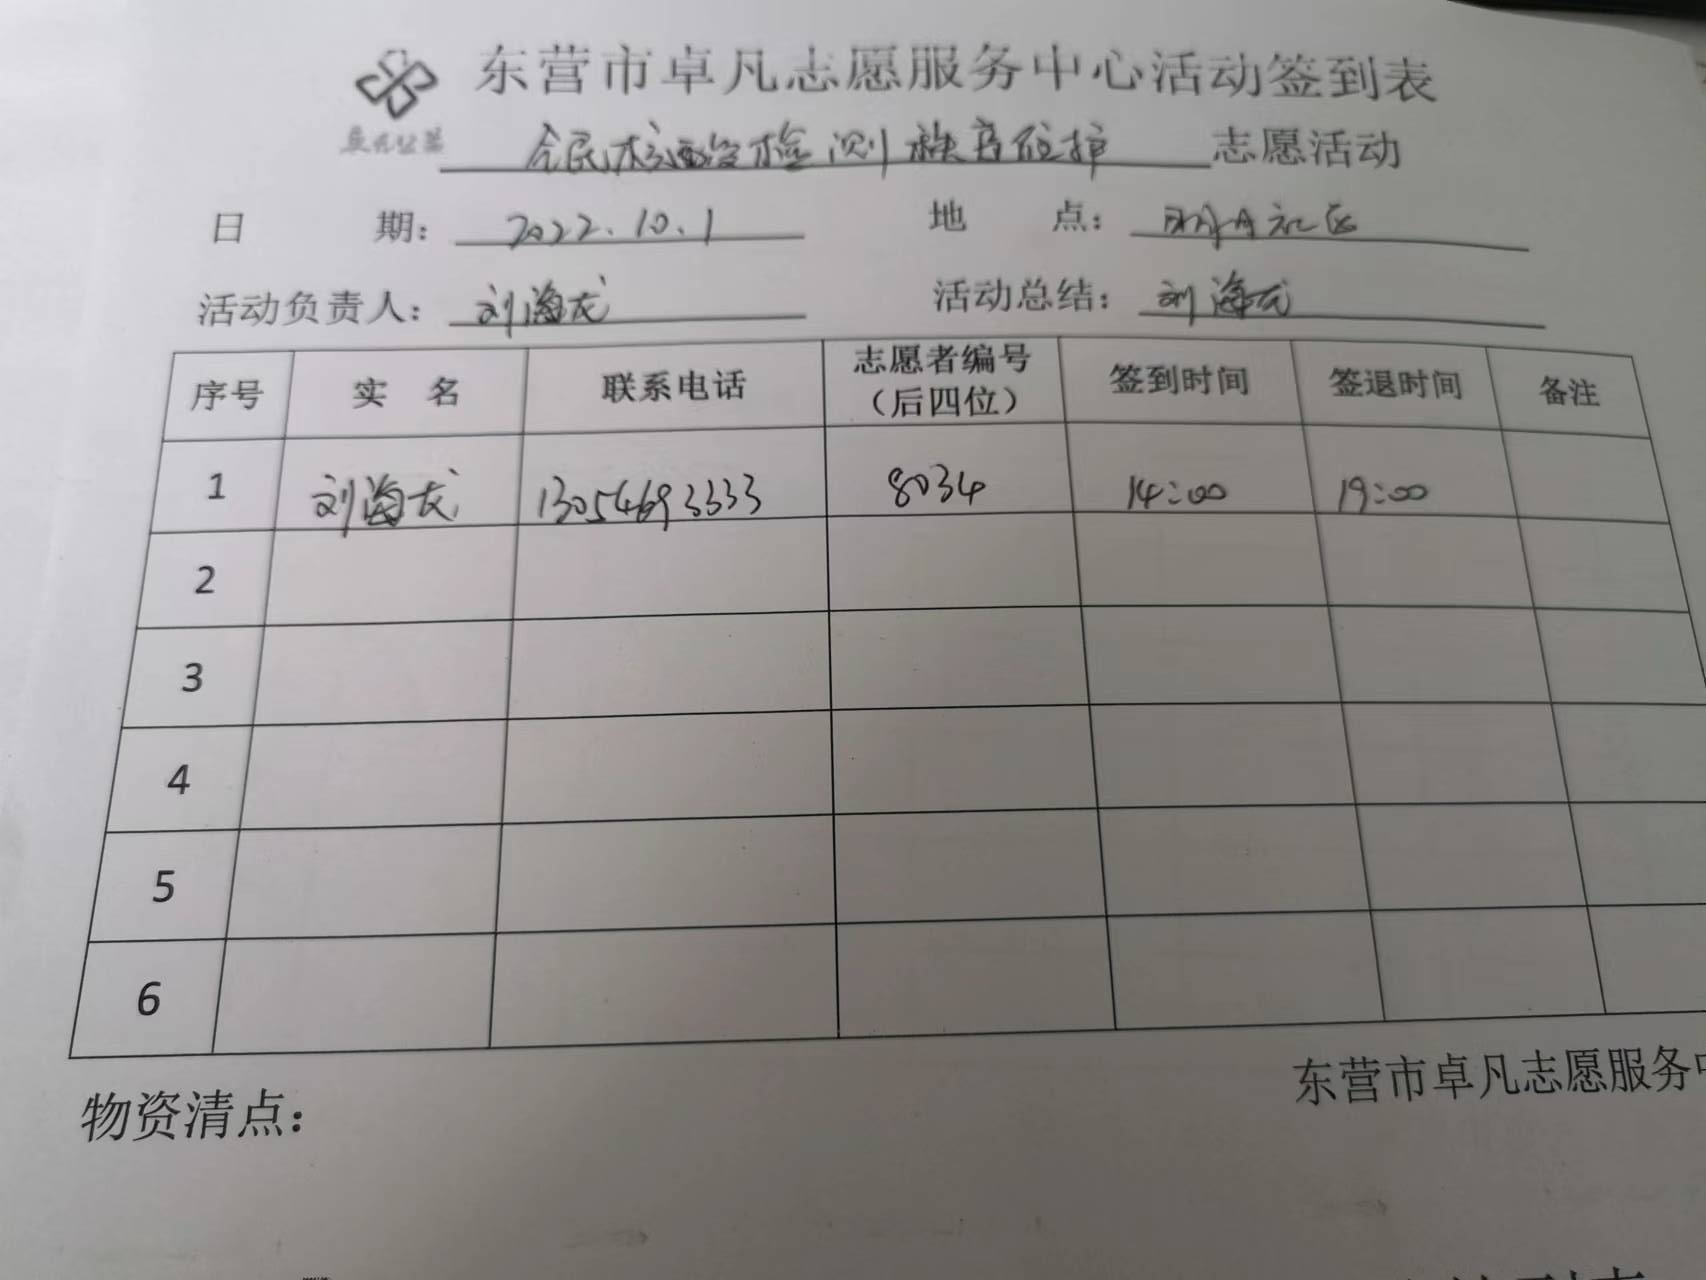 东营市卓凡志愿服务中心活动签到表
卓凡公益
全民核酸检测秩序维护 志愿活动
日 期： 2022.10.1 地 点： 社区
活动负责人： 刘海龙 活动总结： 刘海龙
序号 实 名 联系电话 志愿者编号（后四位） 签到时间 签退时间 备注
1 刘海龙 13054693333 8034 14:00 19:00
2
3
4
5
6
东营市卓凡志愿服务中
物资清点：